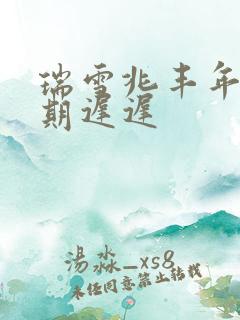 瑞雪兆丰年
期遲遲
湯淼_xs8
未经同意禁止转载